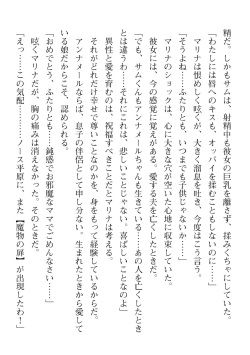 精だ。しかもサムは、射精中も彼女の巨乳を離さず、揉みくちゃにしていた。
「わたしには唇へのキスも、オッパイを揉むこともしないのに……」
マリナは恨めしく呟くが、大きく溜息を吐き、今度はこう言う。
「そうよね……ふたりとも、いつまでも子供じゃないか……」
マリナのショックは、心に大きな穴が空いた心地に収束していた。
彼女には、今の感覚に覚えがある。愛する夫を亡くしたときだ。
「でも、サムくんもアンナメールちゃんも生きている……あの人を亡くしたとき
とは違うわ……それにこれは、悲しいことじゃない。喜ばしいことなのよ」
異性と愛を育むのは、祝福すべきことだとマリナは考える。
それがどれだけ幸せで尊いことなのかを、身をもって経験しているからだ。
アンナメールならば、息子の伴侶として申し分ない。生まれたときから愛して
いる娘だからこそ、認められる。
「おめでとう、ふたりとも……鈍感でお邪魔なママでごめんなさい……」
呟くマリナだが、胸の痛みは消えなかった。そのときだ。
「えっ……この気配……ノース平原に、また【魔物の扉】が出現したわ！」